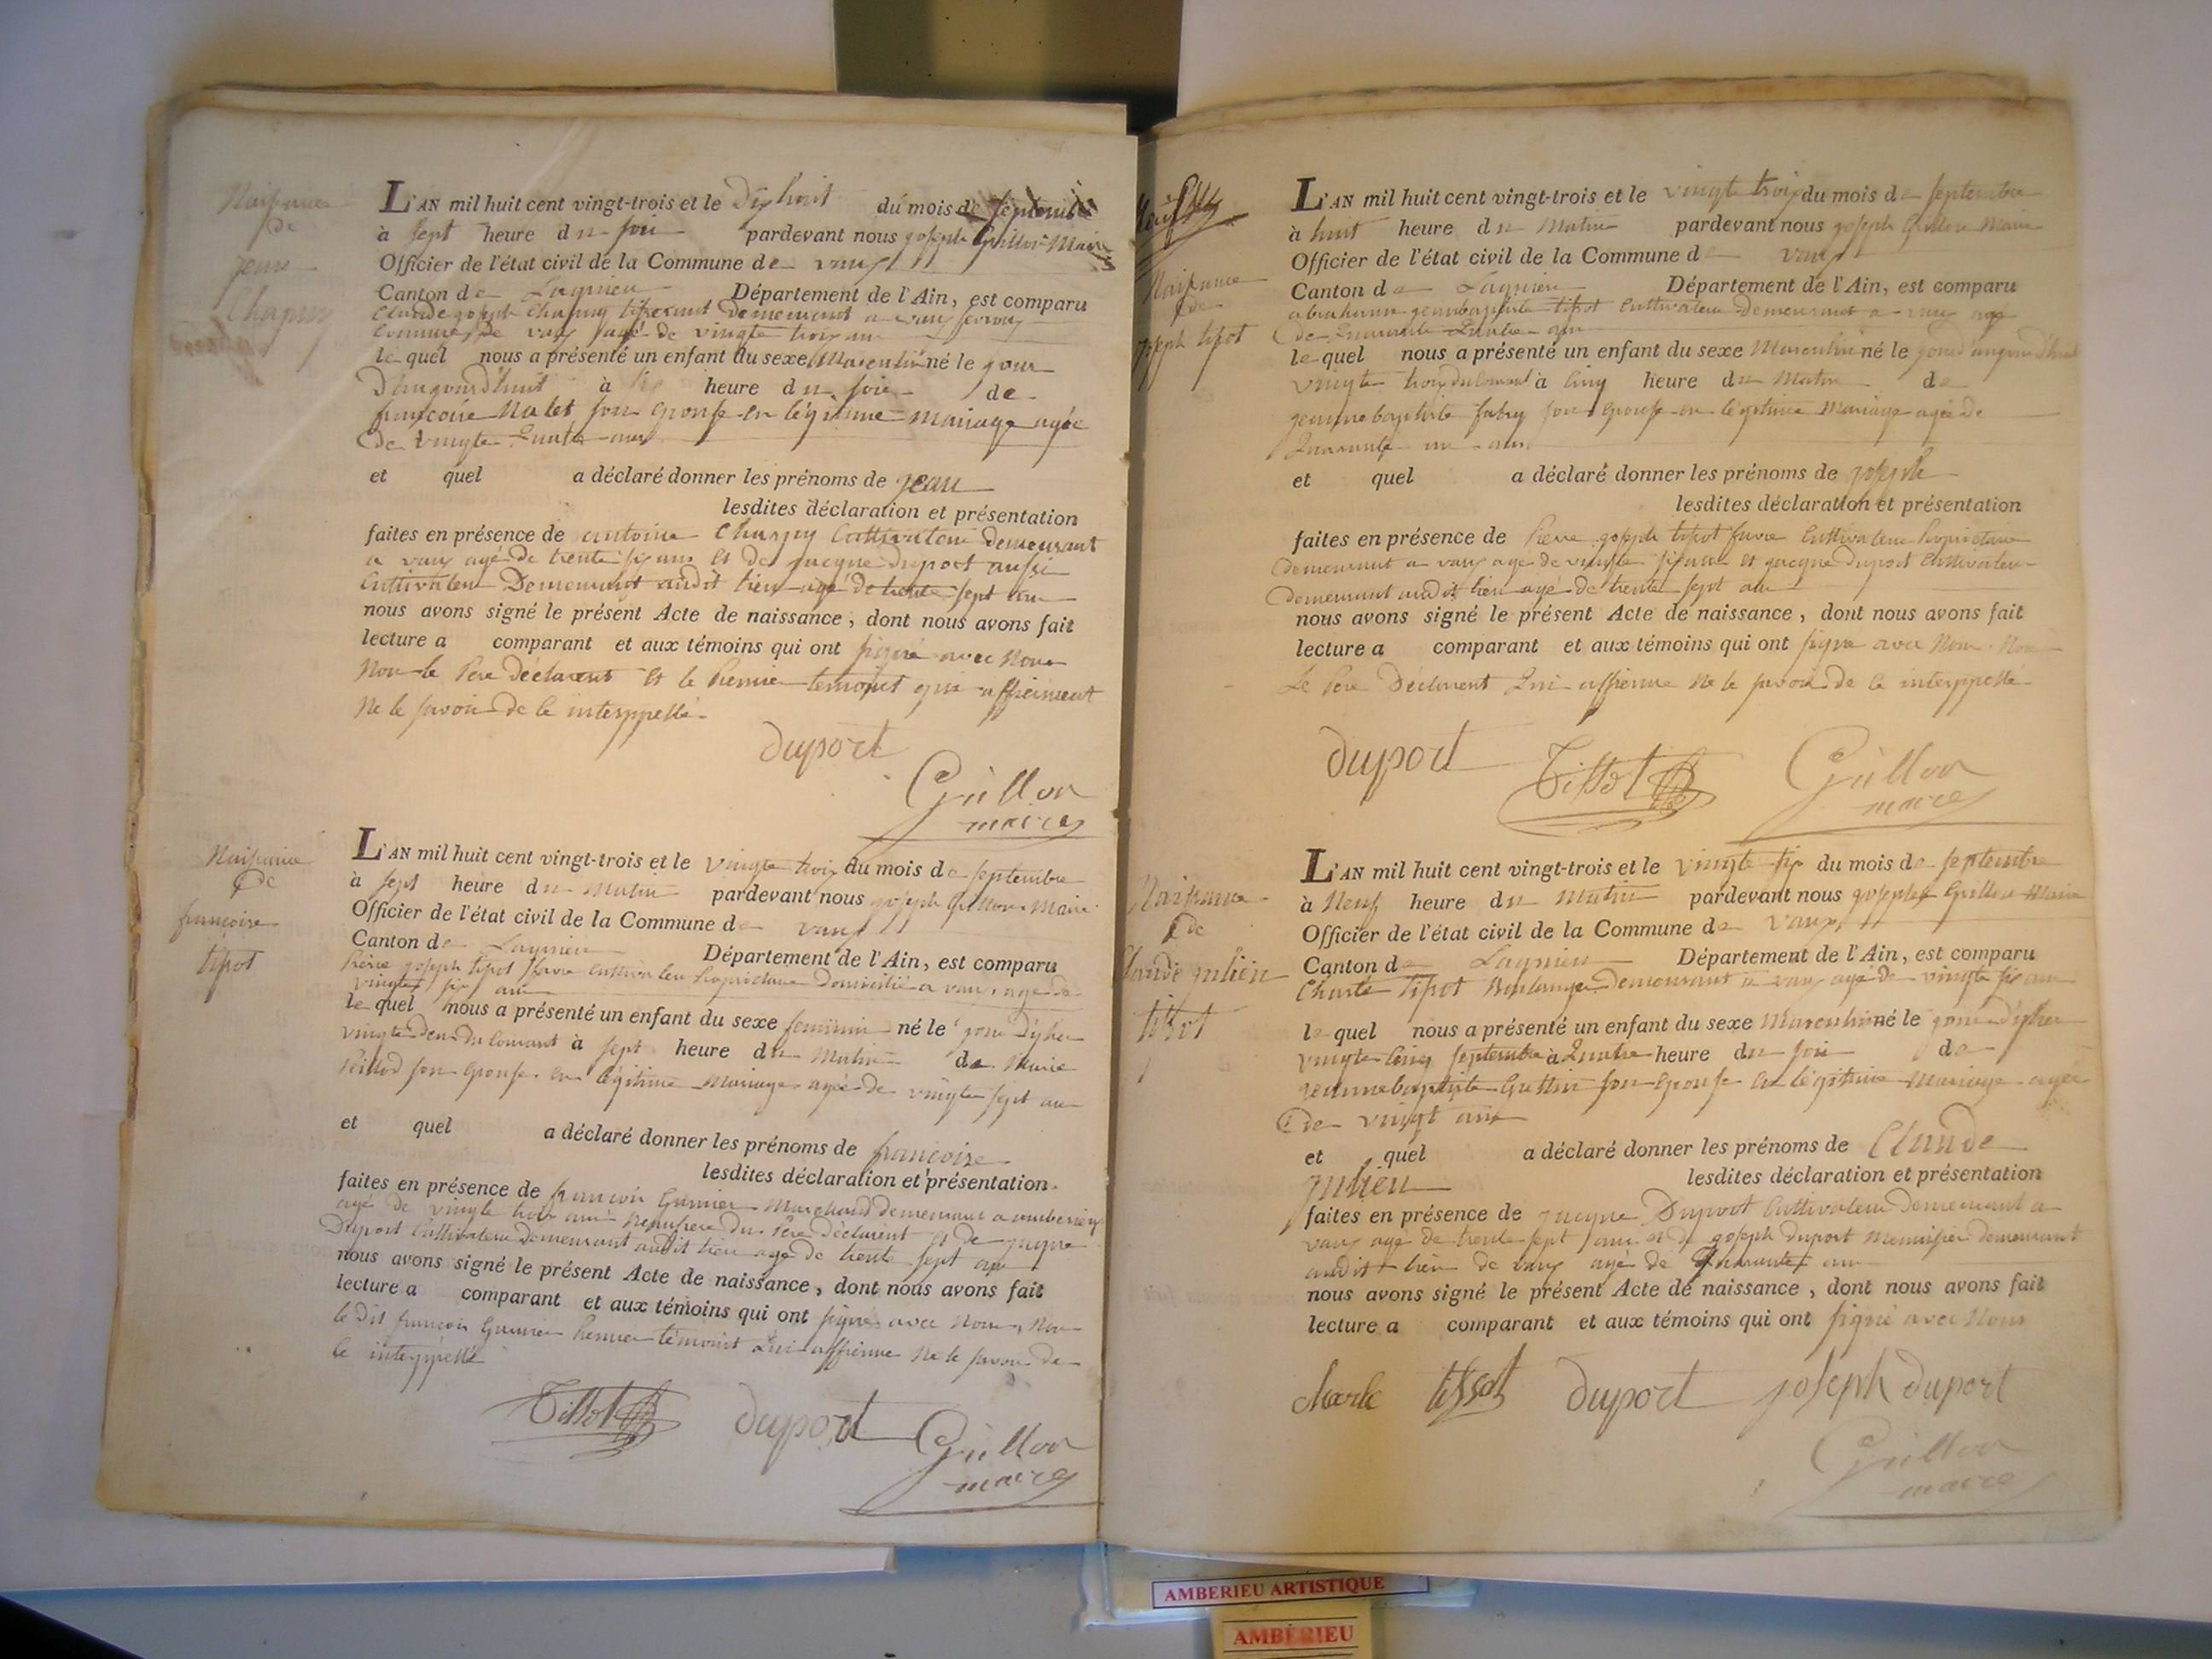 Naissance
de
jean
Chapuy
L'AN mil huit cent vingt-trois et le Dix huit du mois de septembre
à sept heure du soir pardevant nous joseph Grillon Maire
Officier de l'état civil de la Commune de vaux
Canton de Lagnieu Département de l'Ain, est comparu
Claude joseph tisserant Demeurant a vaux
Commune de vaux agé de vingte trois ans
le quel nous a présenté un enfant du sexe Masculin né le jour
D'aujourd'huit à heure du soir de
françoise son epouse en légitime mariage agée
de vingte quatre ans
et quel a déclaré donner les prénoms de jean
lesdites déclaration et présentation
faites en présence de antoine Cultivateur demeurant
a vaux agé de trente six ans et de jacque Duport aussi
Cultivateur Demeurant audit lieu agé de trente sept ans
nous avons signé le présent Acte de naissance, dont nous avons fait
lecture a comparant et aux témoins qui ont signé avec Nous
Non le Pere Déclarent et le Premier temoint qui affirment
Ne le savoir de ce interppellé
duport
Grillon
maire
Naissance
de
françoise
tissot
L'AN mil huit cent vingt-trois et le vingte trois du mois de septembre
à sept heure du Matin pardevant nous joseph Grillon Maire
Officier de l'état civil de la Commune de vaux
Canton de Lagnieu Département de l'Ain, est comparu
Pierre joseph tissot favre cultivateur Proprietaire Domicilié a vaux agé de
vingte six ans
le quel nous a présenté un enfant du sexe feminin né le jour D'yher
vingte deux du Courant à sept heure du Matin de Marie
son epouse en légitime Mariage agée de vingte sept ans
et quel a déclaré donner les prénoms de françoise
lesdites déclaration et présentation
faites en présence de francois Marchand demeurant a
agé de vingte trois ans du Pere déclarent et de jacque
Duport Cultivateur demeurant audit lieu agé de trente sept ans
nous avons signé le présent Acte de naissance, dont nous avons fait
lecture a comparant et aux témoins qui ont signé avec Nous, Non
le dit francois Premier témoint Qui affirme Ne le savoir de
ce interppellé
Tissot duport
Grillon
maire
Naissance
de
joseph tissot
L'AN mil huit cent vingt-trois et le vingte trois du mois de septembre
à huit heure du Matin pardevant nous joseph Grillon Maire
Officier de l'état civil de la Commune de vaux
Canton de Lagnieu Département de l'Ain, est comparu
abraham jeanbaptiste tissot Cultivateur Demeurant a vaux agé
de Quarante Quatre ans
le quel nous a présenté un enfant du sexe Masculin né le jour d'aujourd'huit
vingte trois du Courant à Cinq heure du Matin de
jeannebaptiste fabry son epouse en légitime Mariage agée de
Quarante un ans
et quel a déclaré donner les prénoms de joseph
lesdites déclaration et présentation
faites en présence de Pierre joseph tissot favre Cultivateur Proprietaire
Demeurant a vaux agé de vingte six ans et jacque Duport Cultivateur
Demeurant audit lieu agé de trente sept ans
nous avons signé le présent Acte de naissance, dont nous avons fait
lecture a comparant et aux témoins qui ont signé avec Nous Non
Le Pere Déclarent Qui affirme Ne le savoir de ce interppellé
duport Tissot Grillon
maire
Naissance
de
Claude julien
tissot
L'AN mil huit cent vingt-trois et le vingte six du mois de septembre
à Neuf heure du Matin pardevant nous joseph Grillon Maire
Officier de l'état civil de la Commune de vaux
Canton de Lagnieu Département de l'Ain, est comparu
Charle Tissot Boulanger demeurant a vaux agé de vingte six ans
le quel nous a présenté un enfant du sexe Masculin né le jour d'yher
vingte Cinq septembre à Quatre heure du soir de
jeannebaptiste son epouse en légitime Mariage agée
de vingt ans
et quel a déclaré donner les prénoms de Claude
julien lesdites déclaration et présentation
faites en présence de jacque Duport Cultivateur demeurant a
vaux agé de trente sept ans et de joseph duport Menuisier demeurant
audit lieu de vaux agé de Quarante ans
nous avons signé le présent Acte de naissance, dont nous avons fait
lecture a comparant et aux témoins qui ont signé avec Nous
Charle tissot duport joseph duport
Grillon
maire
AMBERIEU ARTISTIQUE
AMBÉRIEU